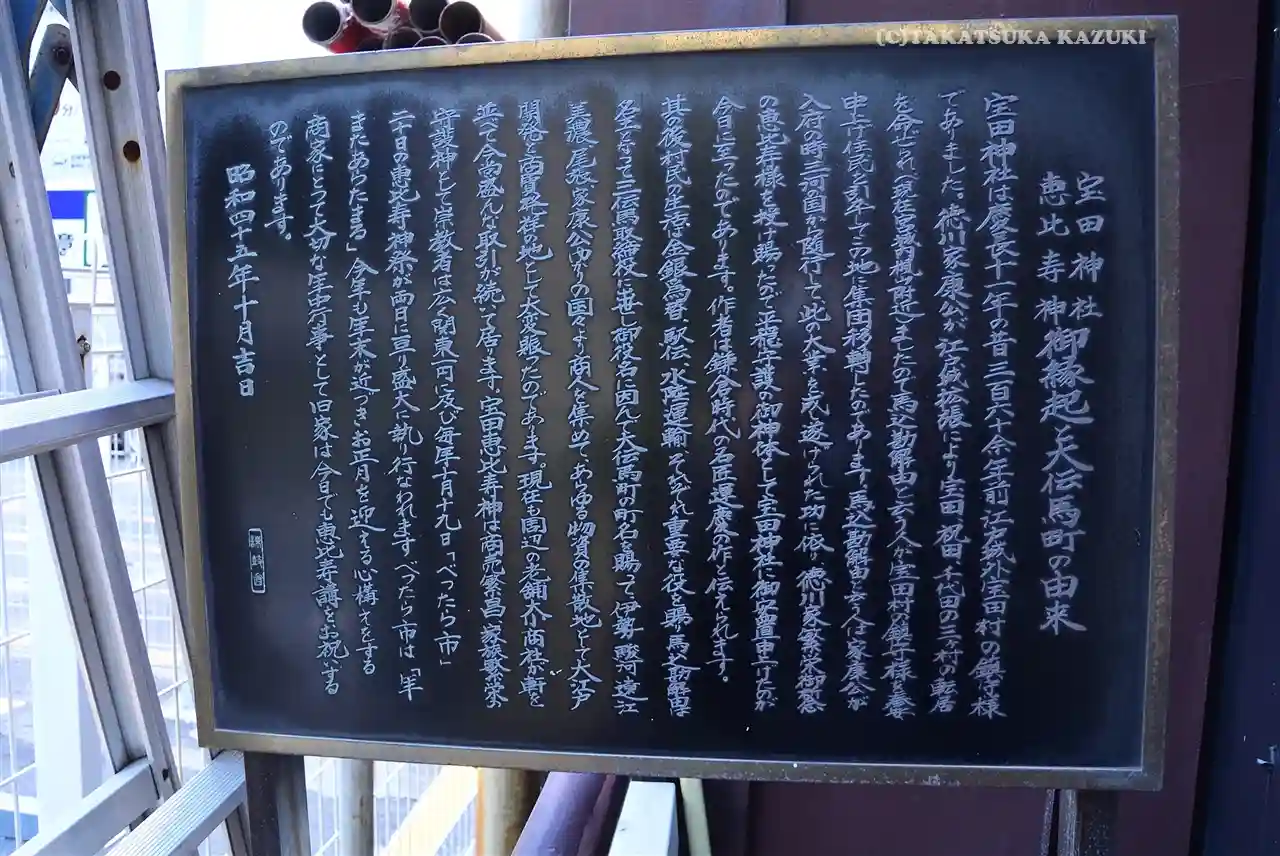 (C)TAKATSUKA KAZUKI
宝田神社
恵比寿神
御縁起・大伝馬町の由来
宝田神社は慶長十一年の昔三百六十余年前江戸城外宝田村の鎮守様
でありました。徳川家康公が江戸城拡張により宝田、祝田、千代田の三ヶ村の転居
を命ぜられ(現在宮城内楓山附近)ましたので馬込勘解由と云う人が宝田村の鎮守様を奉安
申上げ住民を引率してこの地に集団移転したのであります。馬込勘解由と云う人は家康公が
入府の時三河国から随行して、此の大業を成し遂げられた功に依り、徳川家繁栄御祈念
の恵比寿様を授け賜ったので平穏守護の御神体として宝田神社に御安置申上げたのが
今日に至ったのであります。作者は鎌倉時代の名匠運慶の作と伝えられます。
其の後村民の生活は金銀為替、駅伝、水陸運輸、それぞれ重要な役を賜り馬込勘解由は
名主となって三伝馬取締役に出世し御役名に因んで大伝馬町の町名を賜って伊勢、駿河、遠江
美濃、尾張、家康公ゆかりの国々より商人を集めて、あらゆる物資の集散地として大江戸
開発と商賣発祥の地として大変賑ったのであります。現在も周辺の老舗大小商社が軒を
並べて今尚盛んな取引が続いて居ります。宝田恵比寿神は商売繁昌、家族繁栄の
守護神として崇敬者は広く関東一円に及び毎年十月十九日「べったら市」
二十日の恵比寿神祭が両日に亘り盛大に執り行なわれます。べったら市は「年
またあらたまる」今年も年末が近づきお正月を迎える心構えをする
商家にとって大切な年中行事として旧家は今日でも恵比寿講をお祝いする
のであります。
昭和四十五年十月吉日